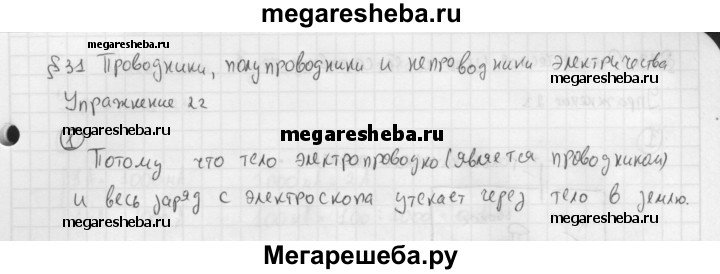 megaresheba.ru
megaresheba.ru
§31 Проводники, полупроводники и непроводники электричества
megaresheba.ru
Упражнение 22
megaresheba.ru
megaresheba.ru
1 Потому что тело электропроводно (является проводником)
megaresheba.ru
и весь заряд с электроскопа утекает через тело в землю.
megaresheba.ru
megaresheba.ru
Мегарешеба.ру